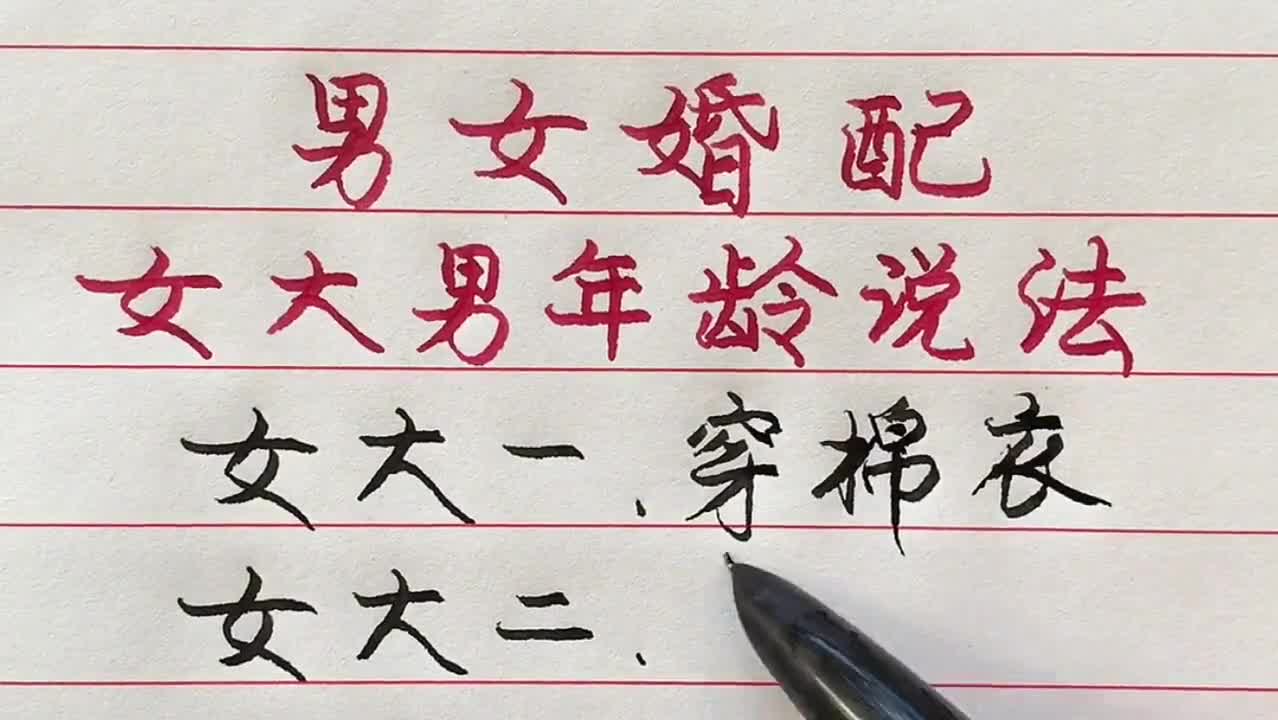 男女婚配
女大男年龄说法
女大一、穿棉衣
女大二、